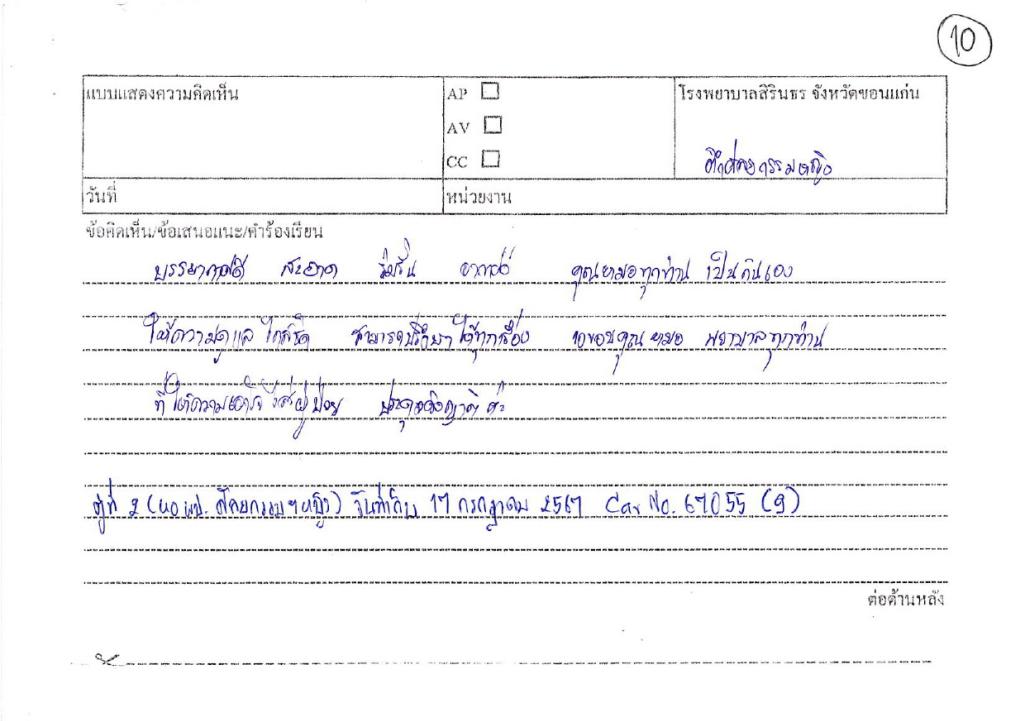 10
แบบแสดงความคิดเห็น
AP
AV
CC
โรงพยาบาลสิรินธร จังหวัดขอนแก่น
ตึกศัลยกรรมหญิง
วันที่
หน่วยงาน
ข้อคิดเห็น/ข้อเสนอแนะ/คำร้องเรียน
บรรยากาศดี สะอาด ร่มรื่น อากาศดี คุณหมอทุกท่าน เป็นกันเอง
ให้ความดูแล ใกล้ชิด สามารถปรึกษาได้ทุกเรื่อง ขอขอบคุณ หมอ พยาบาลทุกท่าน
ที่ให้ความเอาใจใส่ผู้ป่วย ประดุจดังญาติ ค่ะ
ตู้ที่ 2 (หอ ผป. ศัลยกรรมฯหญิง) วันที่เก็บ 17 กรกฎาคม 2567 Car No. 67055 (9)
ต่อด้านหลัง